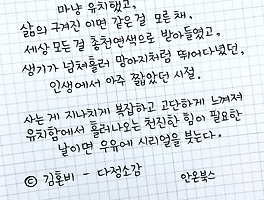 마냥 유치했고,
삶의 구겨진 이면 같은 걸 모른 채,
세상 모든 걸 총천연색으로 받아들였고,
생기가 넘쳐흘러 망아지처럼 뛰어다녔던,
인생에서 아주 짧았던 시절.
사는 게 지나치게 복잡하고 고단하게 느껴져
유치함에서 흘러나오는 천진한 힘이 필요한
날이면 우유에 시리얼을 붓는다.
© 김혼비 - 다정소감 안온북스